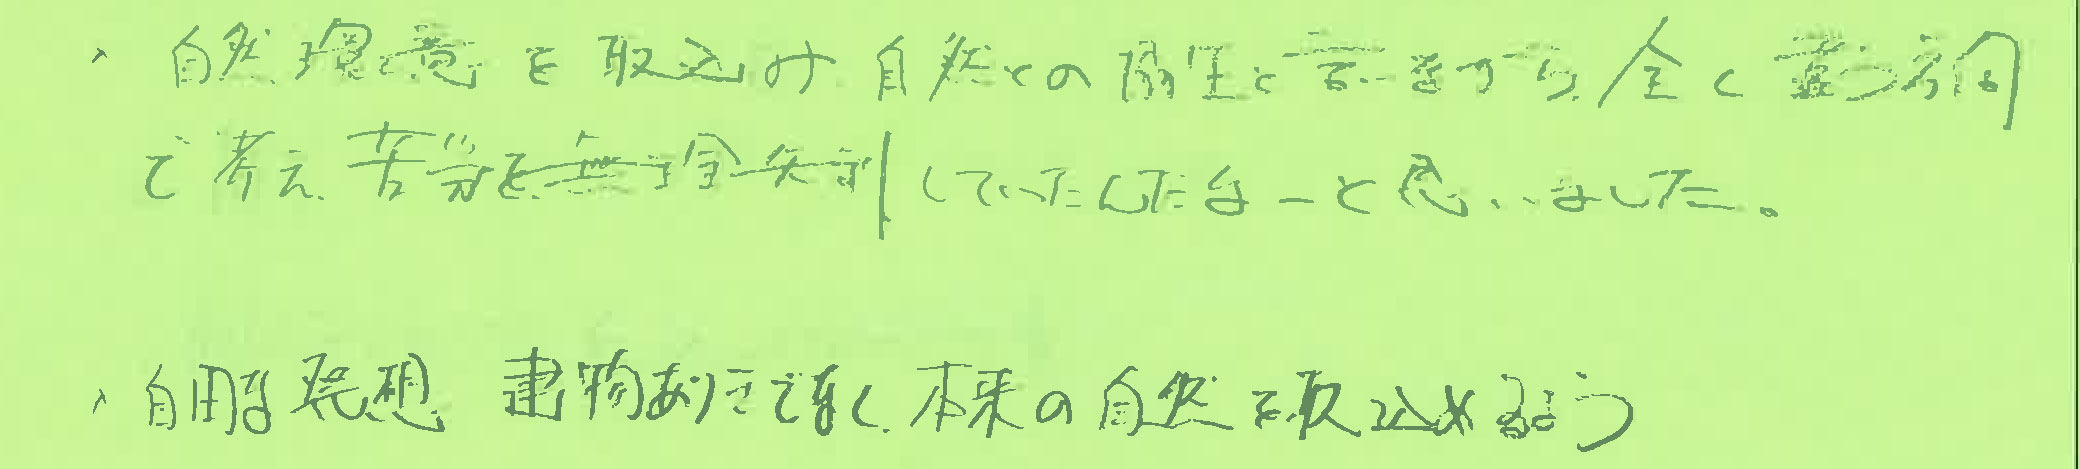 、自然環境を取込み自然との共生と言いながら、全く違う方向
で考え、苦労を無理矢理していたんだなーと思いました。
、自由な発想、建物ありきでなく、本来の自然を取込めるよう